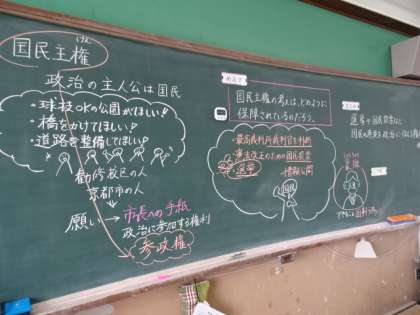 けん
国民主権
政治の主人公は国民
・球技OKの公園がほしい!
・橋をかけてほしい!
・道路を整備してほしい!
勧修校区の人
京都市の人
願い
市長への手紙
政治に参加する権利
参政権
めあて
国民主権の考えは、どのように
保障されているのだろう。
・最高裁判所裁判官を判断
・憲法改正のための国民投票
・選挙
・情報公開
国民
まとめ
選挙や国民投票など